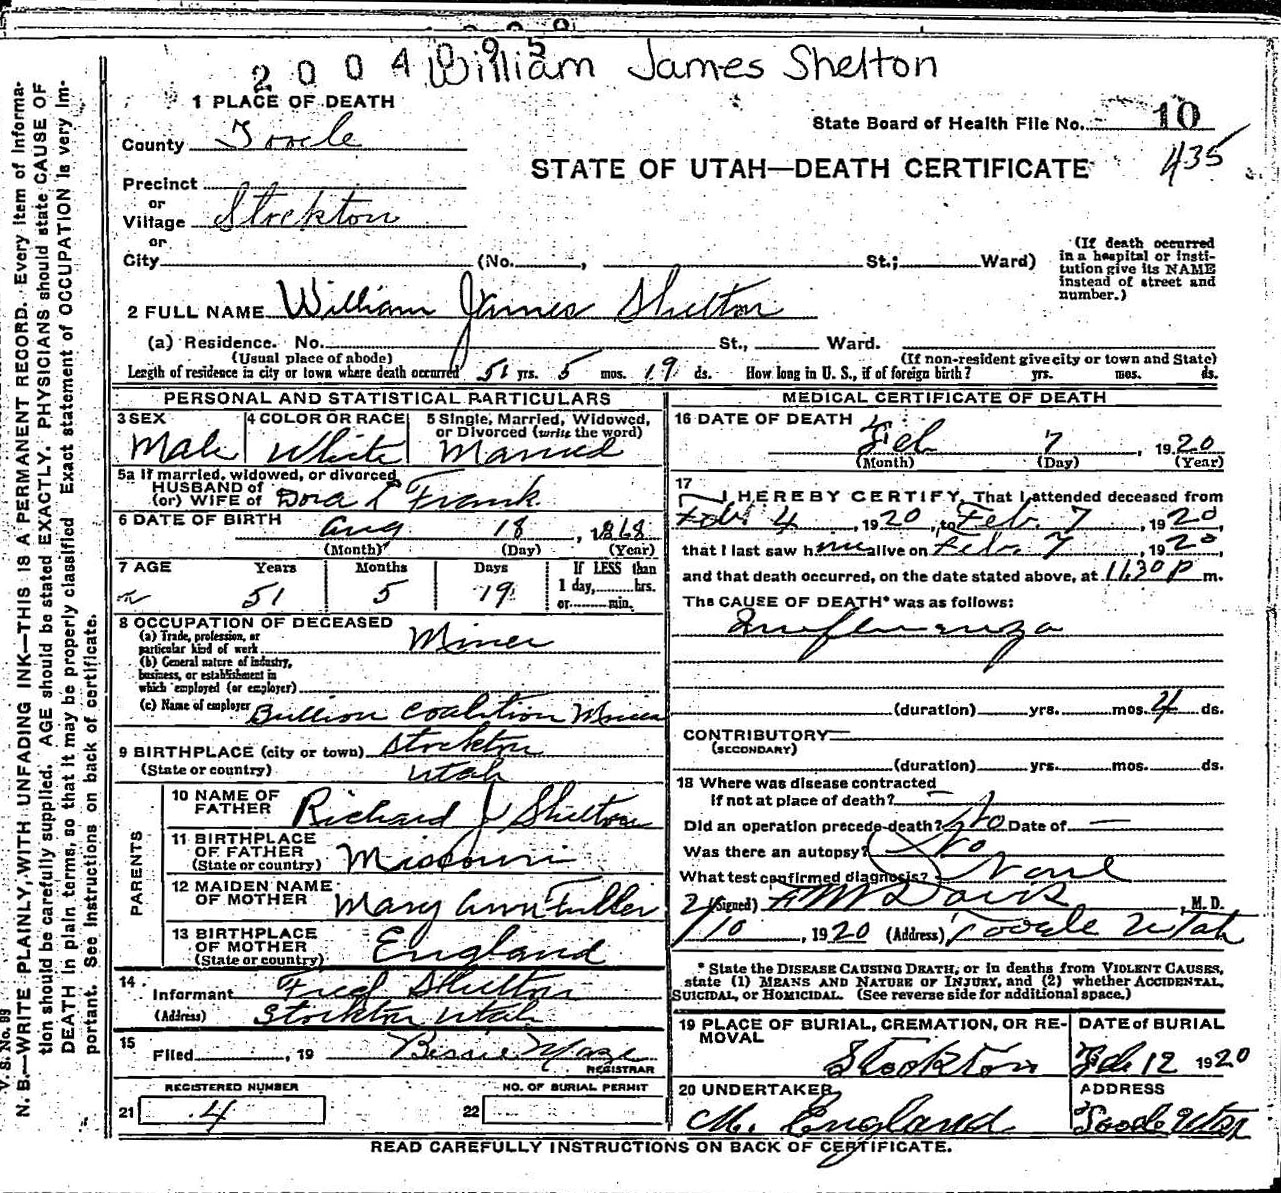 2 0 0 4 0 0 9 5
William James Shelton
1 PLACE OF DEATH
County Tooele
State Board of Health File No. 10
435
STATE OF UTAH—DEATH CERTIFICATE
Precinct
or
Village Stockton
or
City (No. , St.; Ward)
(If death occurred
in a hospital or insti-
tution give its NAME
instead of street and
number.)
2 FULL NAME William James Shelton
(a) Residence. No. St., Ward.
(Usual place of abode) (If non-resident give city or town and State)
Length of residence in city or town where death occurred 51 yrs. 5 mos. 19 ds. How long in U. S., if of foreign birth? yrs. mos. ds.
PERSONAL AND STATISTICAL PARTICULARS
3 SEX
Male
4 COLOR OR RACE
White
5 Single, Married, Widowed,
or Divorced (write the word)
Married
5a If married, widowed, or divorced
HUSBAND of
(or) WIFE of Dora L Frank
6 DATE OF BIRTH Aug 18, 1868
(Month) (Day) (Year)
7 AGE Years Months Days If LESS than
1 day, hrs.
or min.
51 5 19
8 OCCUPATION OF DECEASED
(a) Trade, profession, or
particular kind of work Miner
(b) General nature of industry,
business, or establishment in
which employed (or employer)
(c) Name of employer Bullion Coalition Mines
9 BIRTHPLACE (city or town) Stockton
(State or country) Utah
PARENTS
10 NAME OF
FATHER Richard J Shelton
11 BIRTHPLACE
OF FATHER
(State or country) Missouri
12 MAIDEN NAME
OF MOTHER Mary Ann Fuller
13 BIRTHPLACE
OF MOTHER
(State or country) England
14
Informant Fred Shelton
(Address) Stockton Utah
15
Filed , 19 Bessie Maze
REGISTRAR
REGISTERED NUMBER
21 4
NO. OF BURIAL PERMIT
22
MEDICAL CERTIFICATE OF DEATH
16 DATE OF DEATH
Feb 7, 1920
(Month) (Day) (Year)
17
I HEREBY CERTIFY, That I attended deceased from
Feb 4, 1920, to Feb. 7, 1920,
that I last saw him alive on Feb. 7, 1920,
and that death occurred, on the date stated above, at 11.30 P m.
The CAUSE OF DEATH* was as follows:
Influenza
(duration) yrs. mos. 4 ds.
CONTRIBUTORY
(SECONDARY)
(duration) yrs. mos. ds.
18 Where was disease contracted
if not at place of death? —
Did an operation precede death? No Date of —
Was there an autopsy? No
What test confirmed diagnosis? None
(Signed) F M Davis, M. D.
2/10, 1920 (Address) Tooele Utah
* State the DISEASE CAUSING DEATH, or in deaths from VIOLENT CAUSES,
state (1) MEANS AND NATURE OF INJURY, and (2) whether ACCIDENTAL,
SUICIDAL, or HOMICIDAL. (See reverse side for additional space.)
19 PLACE OF BURIAL, CREMATION, OR RE-
MOVAL
Stockton
DATE of BURIAL
Feb 12 1920
20 UNDERTAKER
M. England
ADDRESS
Tooele Utah
READ CAREFULLY INSTRUCTIONS ON BACK OF CERTIFICATE.
V. S. No. 99
N. B.—WRITE PLAINLY, WITH UNFADING INK—THIS IS A PERMANENT RECORD. Every item of informa-
tion should be carefully supplied. AGE should be stated EXACTLY. PHYSICIANS should state CAUSE OF
DEATH in plain terms, so that it may be properly classified. Exact statement of OCCUPATION is very im-
portant. See instructions on back of certificate.